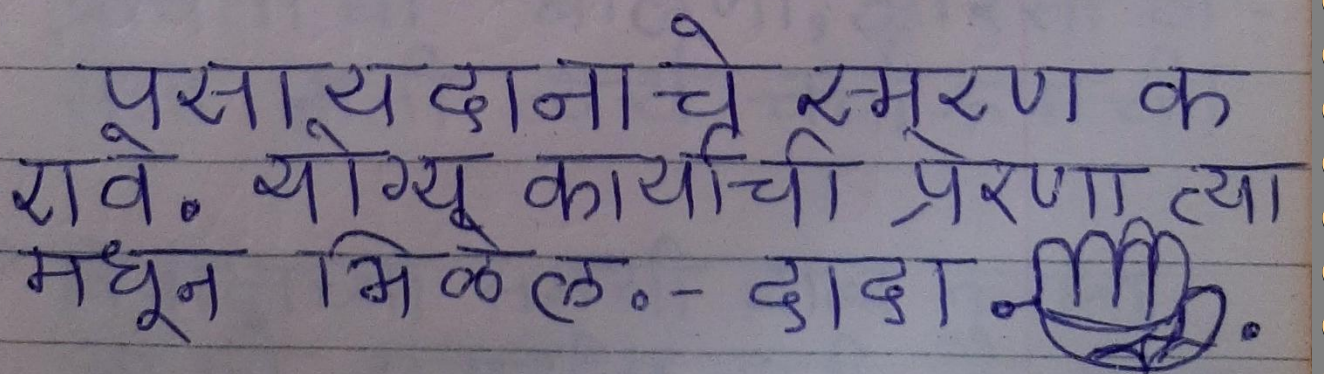 पसायदानाचे स्मरण क
रावे. योग्य कार्याची प्रेरणा त्या
मधून मिळेल.- दादा.